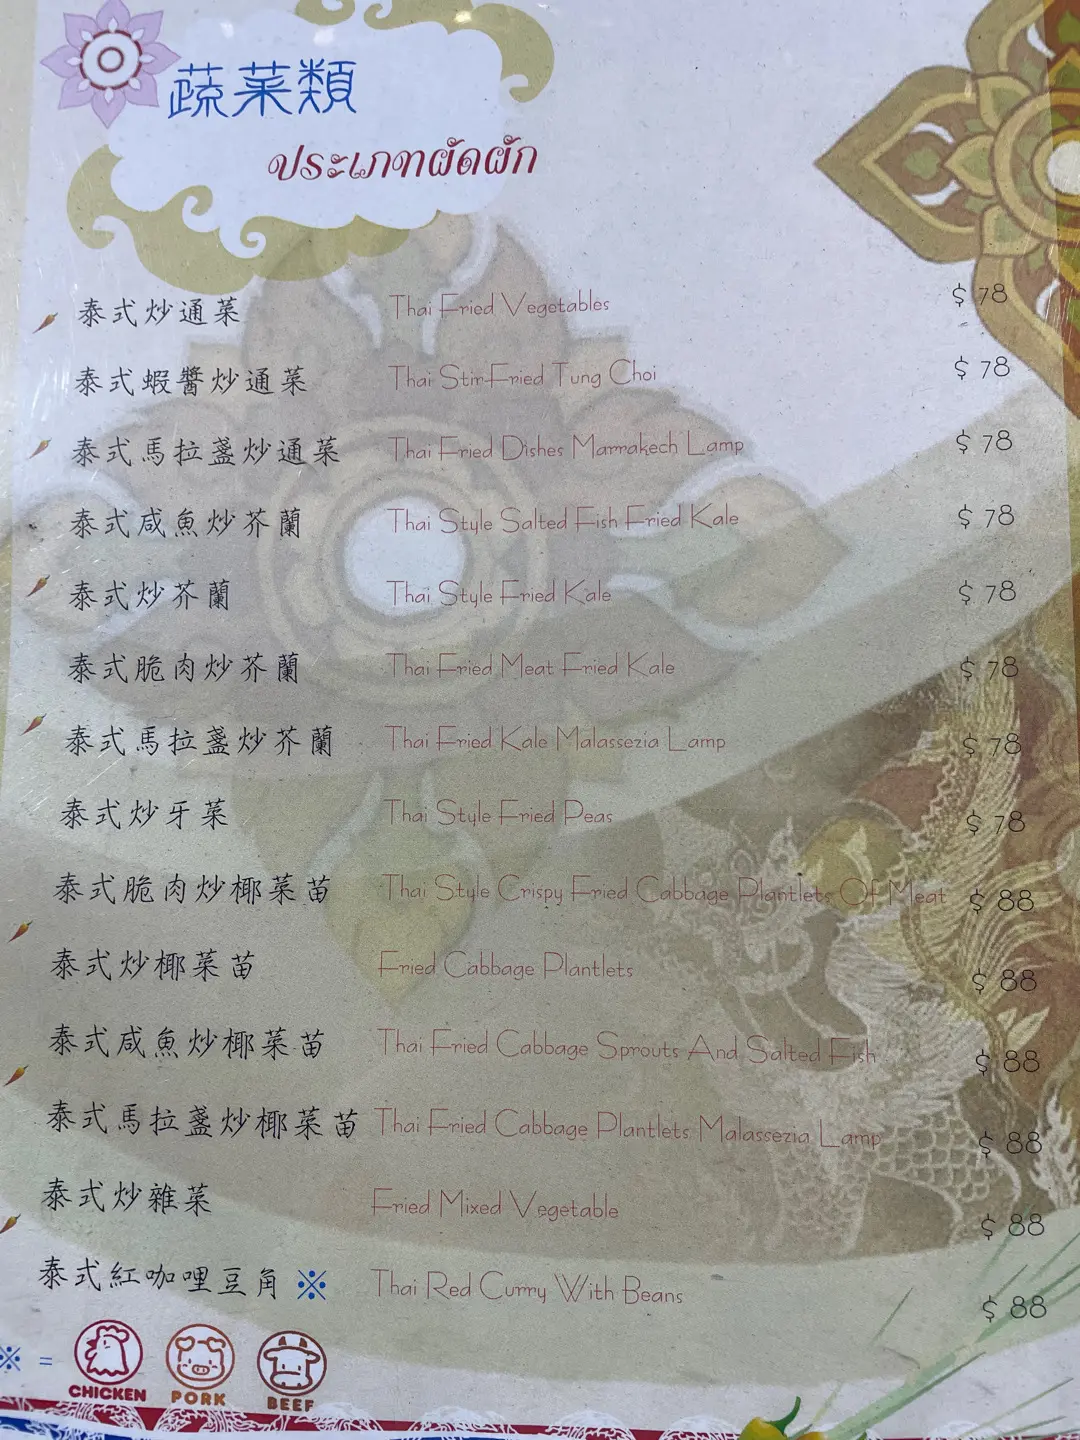 蔬菜類
ประเภทผัดผัก
泰式炒通菜 Thai Fried Vegetables $ 78
泰式蝦醬炒通菜 Thai Stir-Fried Tung Choi $ 78
泰式馬拉盞炒通菜 Thai Fried Dishes Marrakech Lamp $ 78
泰式咸魚炒芥蘭 Thai Style Salted Fish Fried Kale $ 78
泰式炒芥蘭 Thai Style Fried Kale $ 78
泰式脆肉炒芥蘭 Thai Fried Meat Fried Kale $ 78
泰式馬拉盞炒芥蘭 Thai Fried Kale Malassezia Lamp $ 78
泰式炒牙菜 Thai Style Fried Peas $ 78
泰式脆肉炒椰菜苗 Thai Style Crispy Fried Cabbage Plantlets Of Meat $ 88
泰式炒椰菜苗 Fried Cabbage Plantlets $ 88
泰式咸魚炒椰菜苗 Thai Fried Cabbage Sprouts And Salted Fish $ 88
泰式馬拉盞炒椰菜苗 Thai Fried Cabbage Plantlets Malassezia Lamp $ 88
泰式炒雜菜 Fried Mixed Vegetable $ 88
泰式紅咖哩豆角 ※ Thai Red Curry With Beans $ 88
※ = CHICKEN PORK BEEF